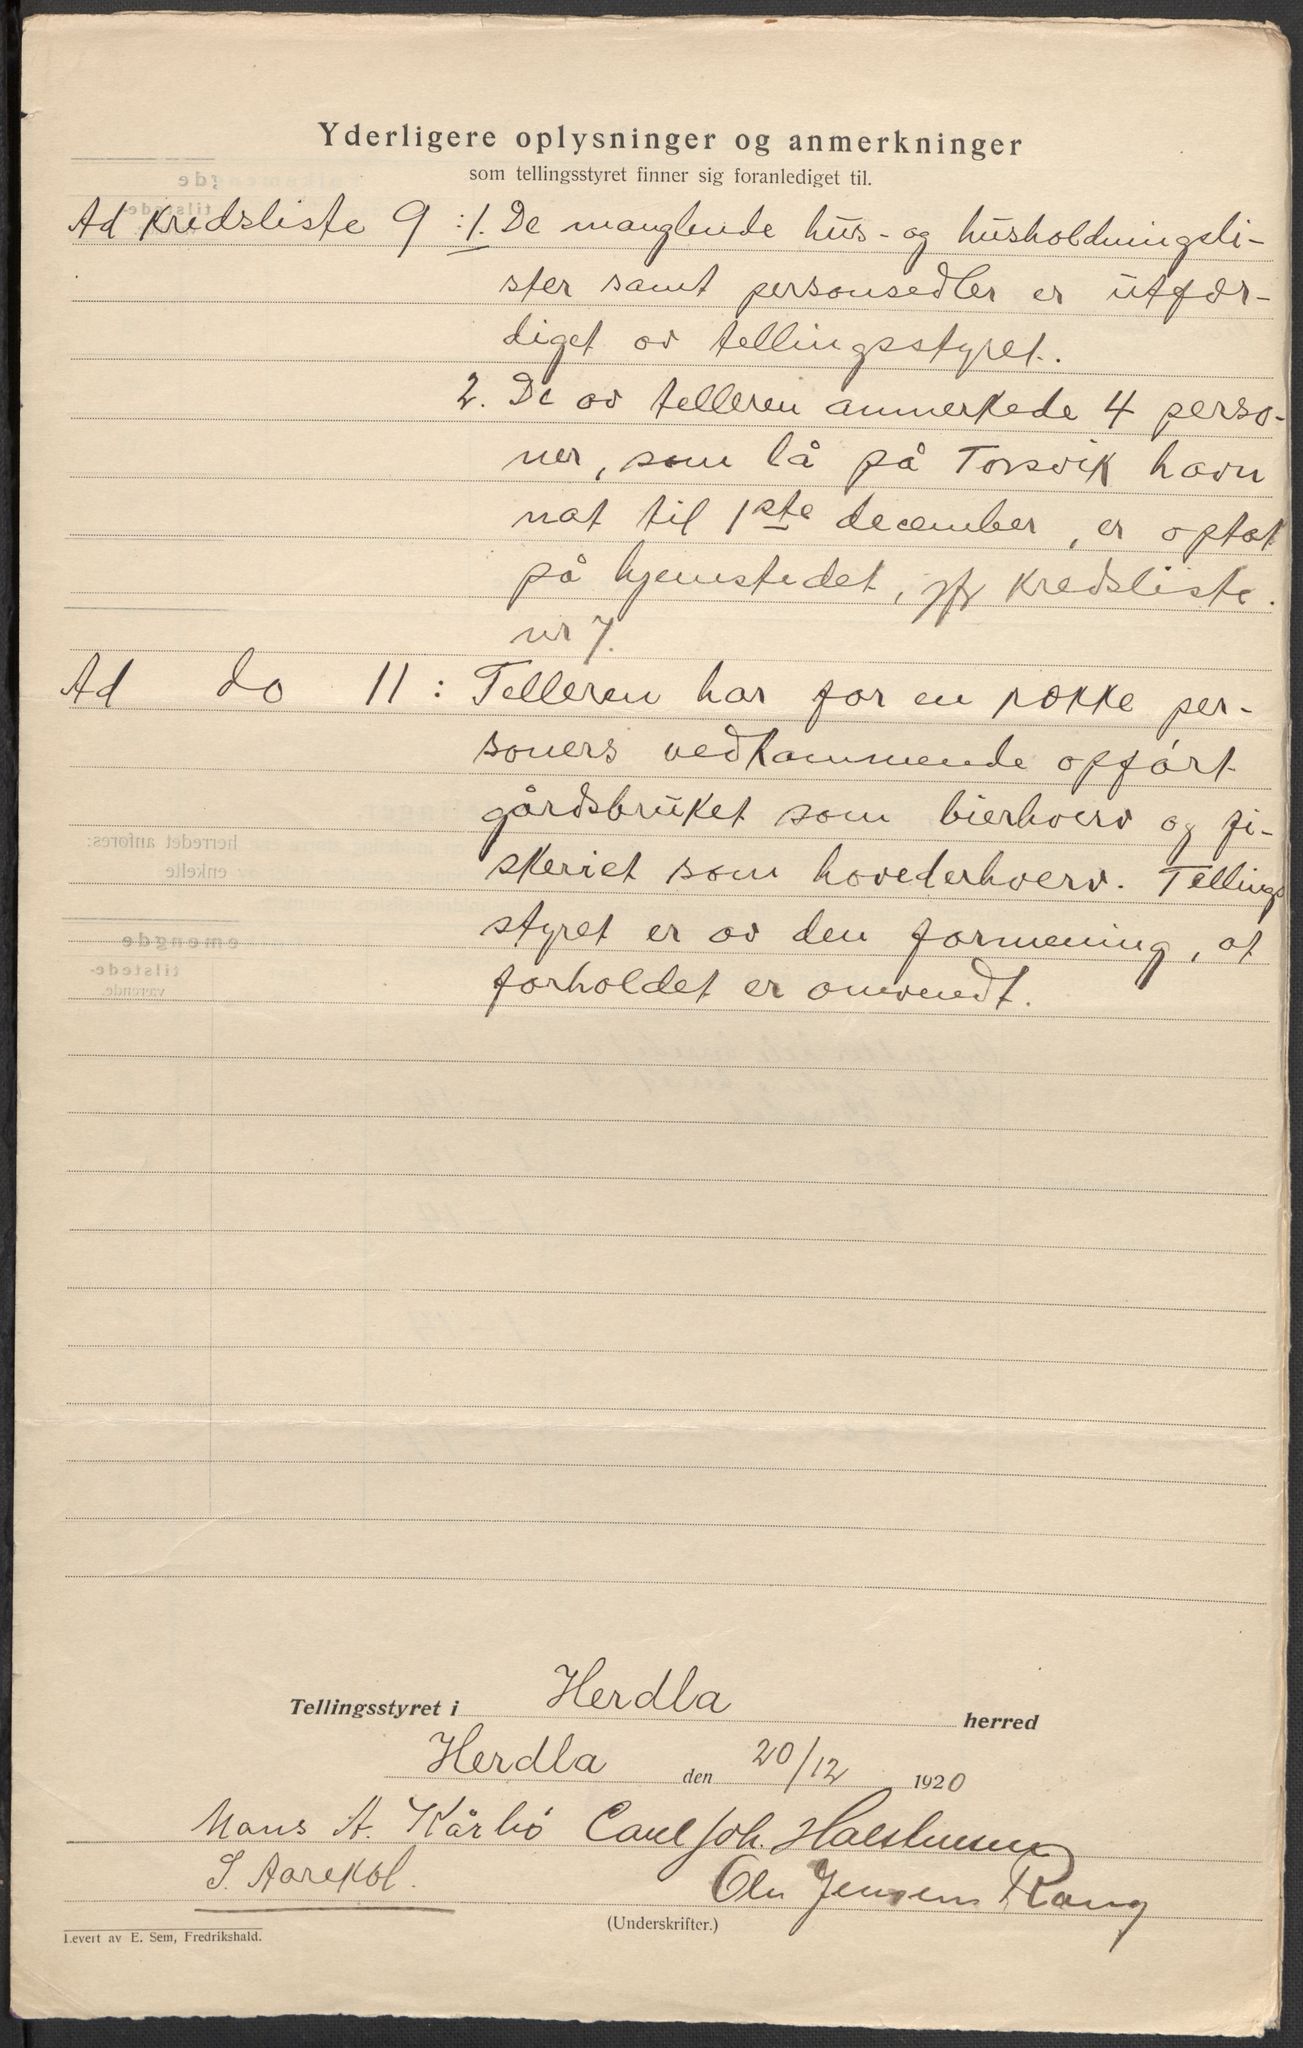 Yderligere oplysninger og anmerkninger
som tellingsstyret finner sig foranlediget til.
Ad Kredsliste 9 : 1. De manglende hus- og husholdningsli-
ster samt personsedler er utfær-
diget av tellingsstyret.
2. De av telleren anmerkede 4 perso-
ner, som lå på Torsvik havn
nat til 1ste december, er optat
på hjemstedet, jfr Kredsliste
nr 7.
Ad do 11 : Telleren har for en række per-
soners vedkommende opført
gårdsbruket som bierhverv og fi-
skeriet som hovederhverv. Tellings
styret er av den formening, at
forholdet er omvendt.
herredet anføres:
enkelte
tilstede-
værende.
Tellingsstyret i Herdla herred
Herdla den 20/12 1920
Mons A. Kårbø Carl Joh.
S. Aarekol. Ole Jensen Rong
(Underskrifter.)
Levert av E. Sem, Fredrikshald.